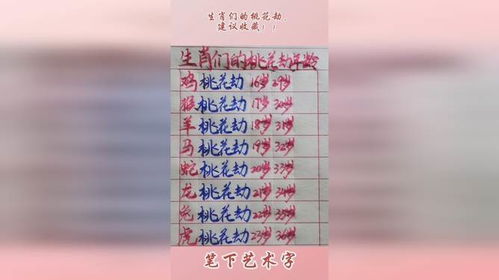 生肖们的桃花劫,
建议收藏!!
生肖们的桃花劫年龄
鸡桃花劫16岁29岁
猴桃花劫17岁30岁
羊桃花劫18岁31岁
马桃花劫19岁32岁
蛇桃花劫20岁33岁
龙桃花劫21岁34岁
兔桃花劫22岁35岁
虎桃花劫23岁36岁
笔下艺术字